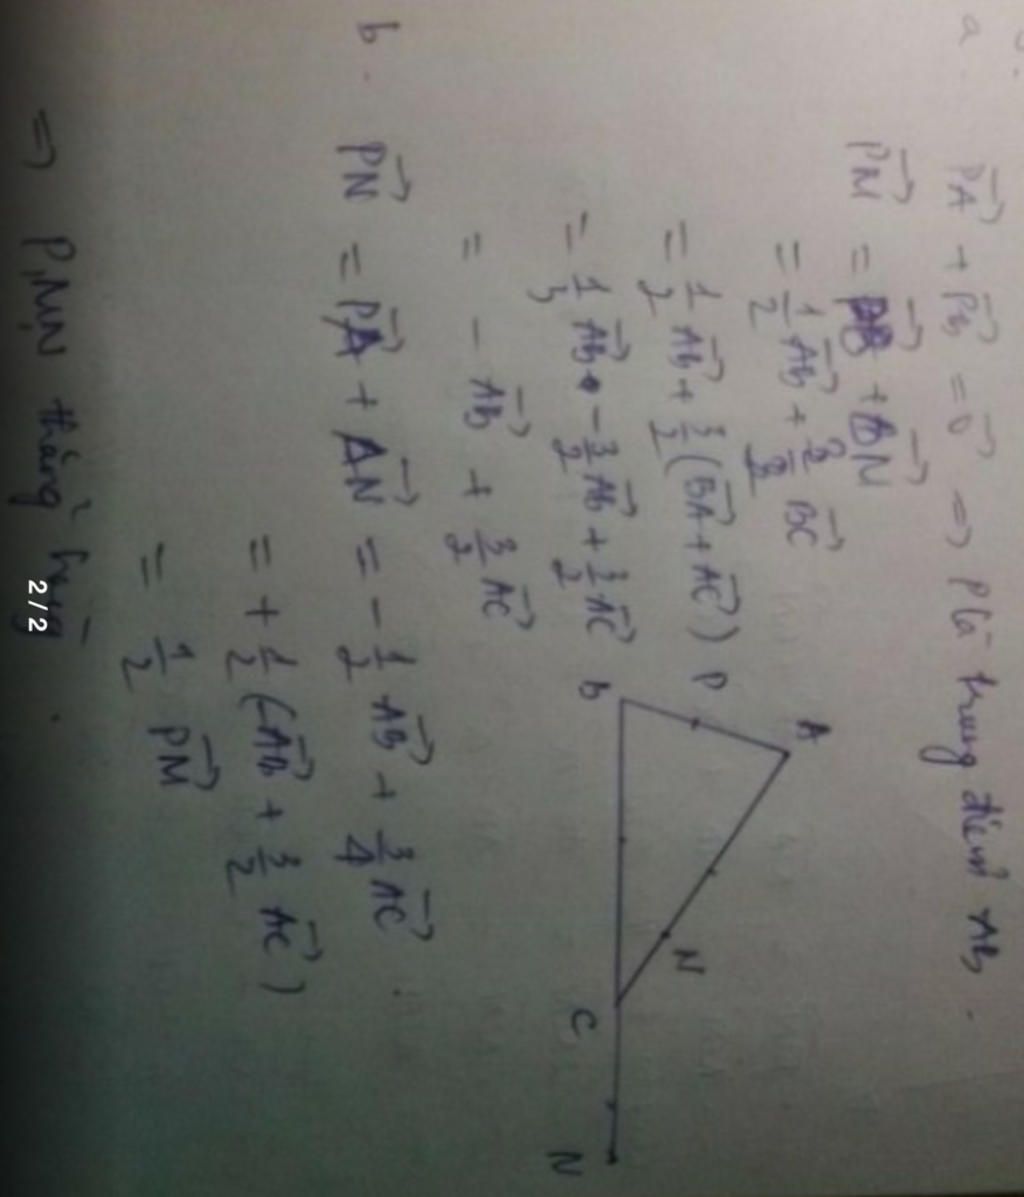 a. PA⃗ + PB⃗ = 0⃗ => P là trung điểm AB.
PM⃗ = PB⃗ + BN⃗
= 1/2 AB⃗ + 3/2 BC⃗
= 1/2 AB⃗ + 3/2 (BA⃗ + AC⃗)
= 1/2 AB⃗ - 3/2 AB⃗ + 3/2 AC⃗
= - AB⃗ + 3/2 AC⃗
A
P
B
N
C
N
b. PN⃗ = PA⃗ + AN⃗ = - 1/2 AB⃗ + 3/4 AC⃗.
= + 1/2 (-AB⃗ + 3/2 AC⃗)
= 1/2 PM⃗
=> P,M,N thẳng hàng.
2/2